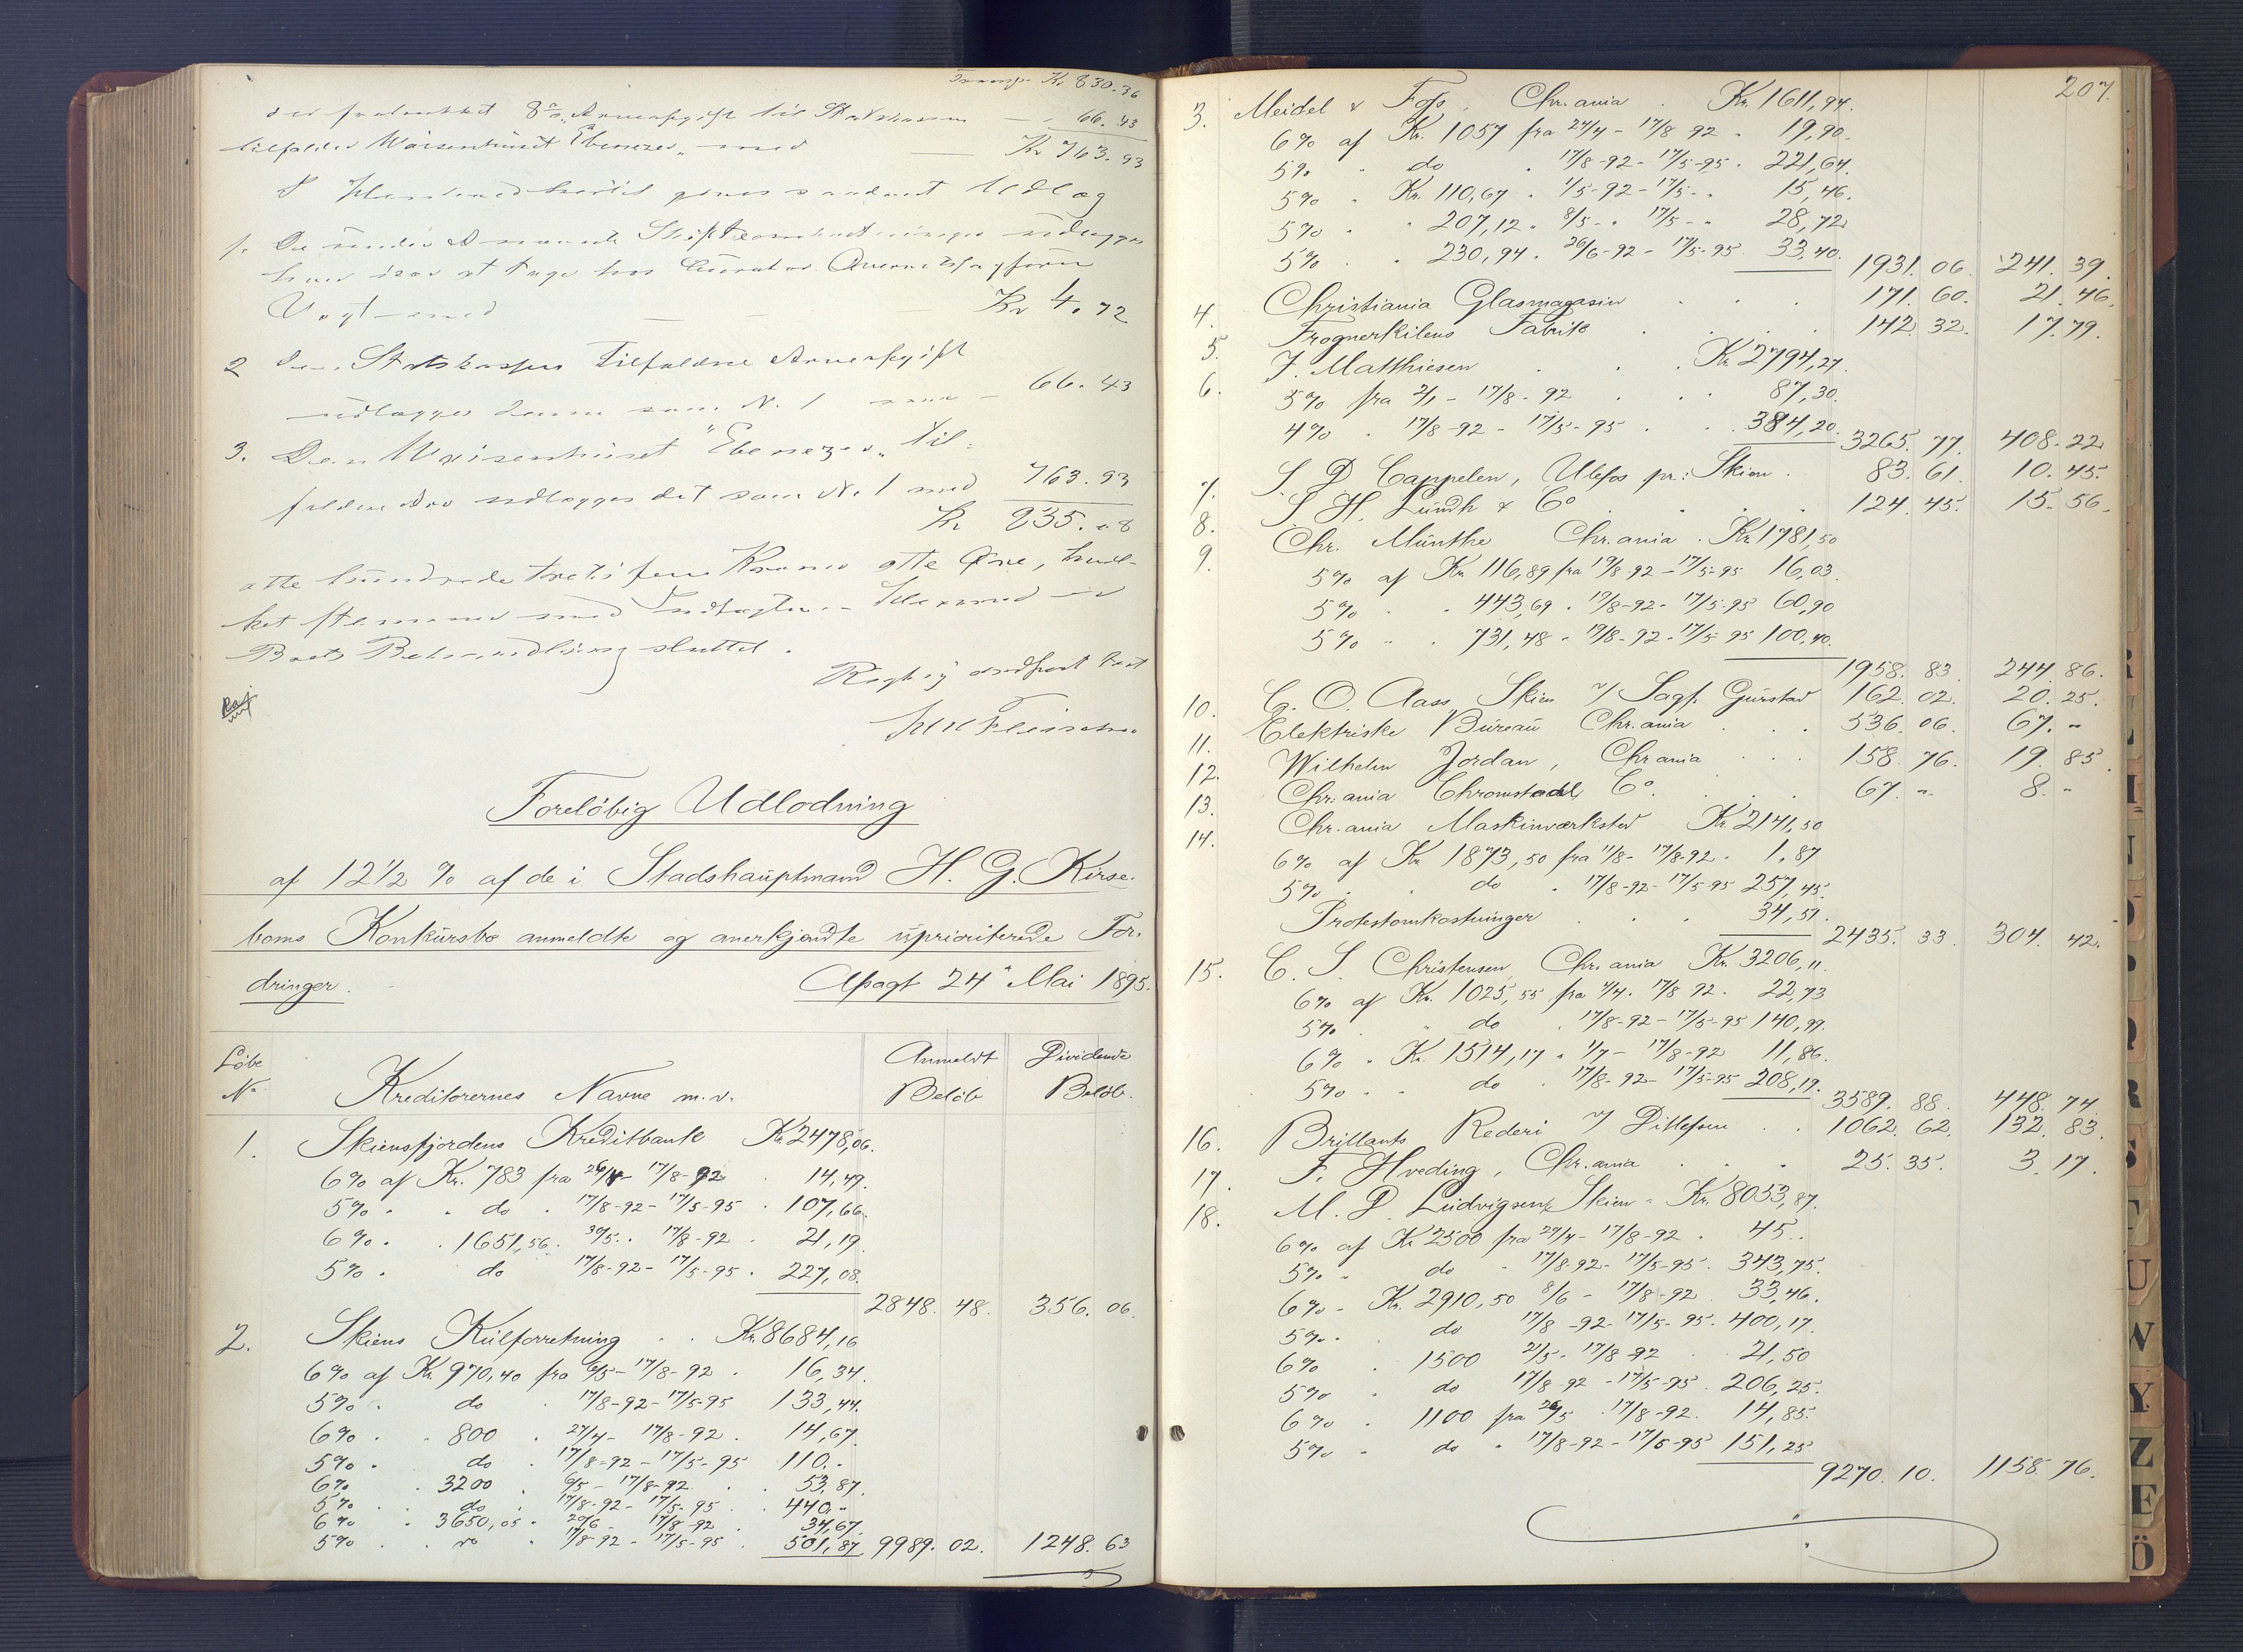 Transp. Kr 830.36
der fratrukket 8% Arveafgift til Statskassen — 66.43
tilfalder Waisenhuset "Ebenezer" med — Kr 763.93
I Henhold hertil gives saadant Udlæg
1. De under
Vogt med — Kr 4.72
2 Den Statskassen tilfaldne Arveafgift
udlægges denne som N. 1 med — 66.43
3. Den Waisenhuset "Ebenezer" til-
faldne Arv udlægges det som N. 1 med 763.93
Kr 835.08
otte hundrede treti fem Kroner otte Øre, hvil-
ket stemmer med Indtægten. – Hermed er
Boets Behandling sluttet.
Rigtig indført
Foreløbig Udlodning
af 12 1/2 % af de i Stadshauptmand H. G. Kirse-
boms Konkursbo anmeldte og anerkjendte uprioriterede For-
dringer. Afsagt 24de Mai 1895.
Løbe Anmeldt Dividende
No Kreditorernes Navne m.v. Beløb Beløb.
1. Skiensfjordens Kreditbank Kr 2478,06.
6% af Kr. 783 fra 26/4 - 17/8-92 . 14,49.
5% " " do " 17/8-92 - 17/5-95 . 107,66.
6% . . 1651,56. 30/5 . 17/8-92 . 21,19
5% . do 17/8-92 - 17/5-95 . 227,08.
2848. 48. 356. 06.
2. Skiens Kulforretning . . Kr. 8684,16
6% af Kr. 970,40 fra 6/5 - 17/8-92 . 16,34.
5% . do . 17/8-92 - 17/5-95 133,44.
6% . . 800 . 27/4 - 17/8-92 . 14,67.
5% . do . 17/8-92 - 17/5-95 110.-
6% . 3200 . 6/5 - 17/8-92 . . 53,87.
5% . do . 17/8-92 - 17/5-95 . . 440,-
6% . 3650,05 . 20/6 - 17/8-92 . 34,67.
5% . . do . 17/8-92 - 17/5-95 . 501,87 9989. 02. 1248. 63
207.
3. Meidel & Fos . Chr.ania . Kr. 1611,94.
6% af Kr. 1057 fra 27/4 - 17/8 92 - 19,90.
5% . do . 17/8-92 - 17/5-95 . 221,64.
5% . Kr. 110,67 . 1/5-92 - 17/5 - . 15,46.
5% . . 207,12 . 8/5 - . 17/5 - . 28,72
5% . . 230,94 . 26/6-92 - 17/5-95 33,40. 1931. 06. 241. 39.
4. Christiania Glasmagasin . . . 171. 60. 21. 46.
5. Frognerkilens Fabrik . . . . 142. 32. 17. 79.
6. J. Matthiesen . . . Kr. 2794,27.
5% fra 2/1 - 17/8-92 . . . 87,30.
4% . 17/8-92 - 17/5-95 . . . 384,20. 3265. 77. 408. 22
7. S. D. Cappelen, Ulefos pr: Skien . 83. 61. 10. 45.
8. S. H. Lundh & Co . . . . 124. 45. 15. 56.
9. Chr. Münthe Chr.ania . Kr. 1781,50
5% af Kr. 116,89 fra 19/8-92 - 17/5-95 16,03.
5% . . 443,69 . 19/8-92 - 17/5-95 60,90
5% . . 731,48 . 19/8-92 - 17/5 95 100,40.
1958. 83. 244. 86.
10. C. O. Aass, Skien v/ Sagf. Gurstad 162. 02. 20. 25.
11. Elektriske Bureau Chr.ania . . . 536. 06. 67. "
12. Wilhelm Jordan, Chr.ania . . . 158. 76. 19. 85.
13. Chr.ania Chromstaal Co. . . . 67. " 8. "
14. Chr.ania Maskinværksted Kr. 2141,50
6% af Kr. 1873,50 fra 11/8 - 17/8-92 . 1,87
5% . . do . 17/8-92 - 17/5-95 257,45.
Protestomkostninger . . . 34,51. 2435. 33. 304. 42.
15. C. S. Christensen, Chr.ania Kr. 3206,11.
6% af Kr. 1025,55 fra 4/4 . 17/8 92 . 22,73
5% . " do . 17/8-92 - 17/5-95 140,99.
6% . Kr. 1514,17 . 1/7 - 17/8-92 11,86.
5% . . do . 17/8-92 - 17/5-95 208,19. 3589. 88. 448. 74.
16. Brillants Rederi v/ Ditlefsen . . 1062. 62. 132. 83.
17. F. Hveding, Chr.ania . . . 25. 35. 3. 17.
18. M. D. Ludvigsen, Skien - Kr. 8053,87.
6% af Kr 2500 fra 29/4 - 17/8-92 . 45..
5% . do . 17/8 92 - 17/5-95 . 343,75.
6% . Kr. 2910,50 8/6 - 17/8-92 . 33,46.
5% . . do 17/8 -92 - 17/5-95 . 400,17.
6% . 1500 21/5 . 17/8 92 . 21,50
5% . do 17/8 92 - 17/5-95 . 206,25.
6% . 1100 fra 26/5 . 17/8-92 . 14,85.
5% . do . 17/8-92 - 17/5-95 151,25
9270. 10. 1158. 76.